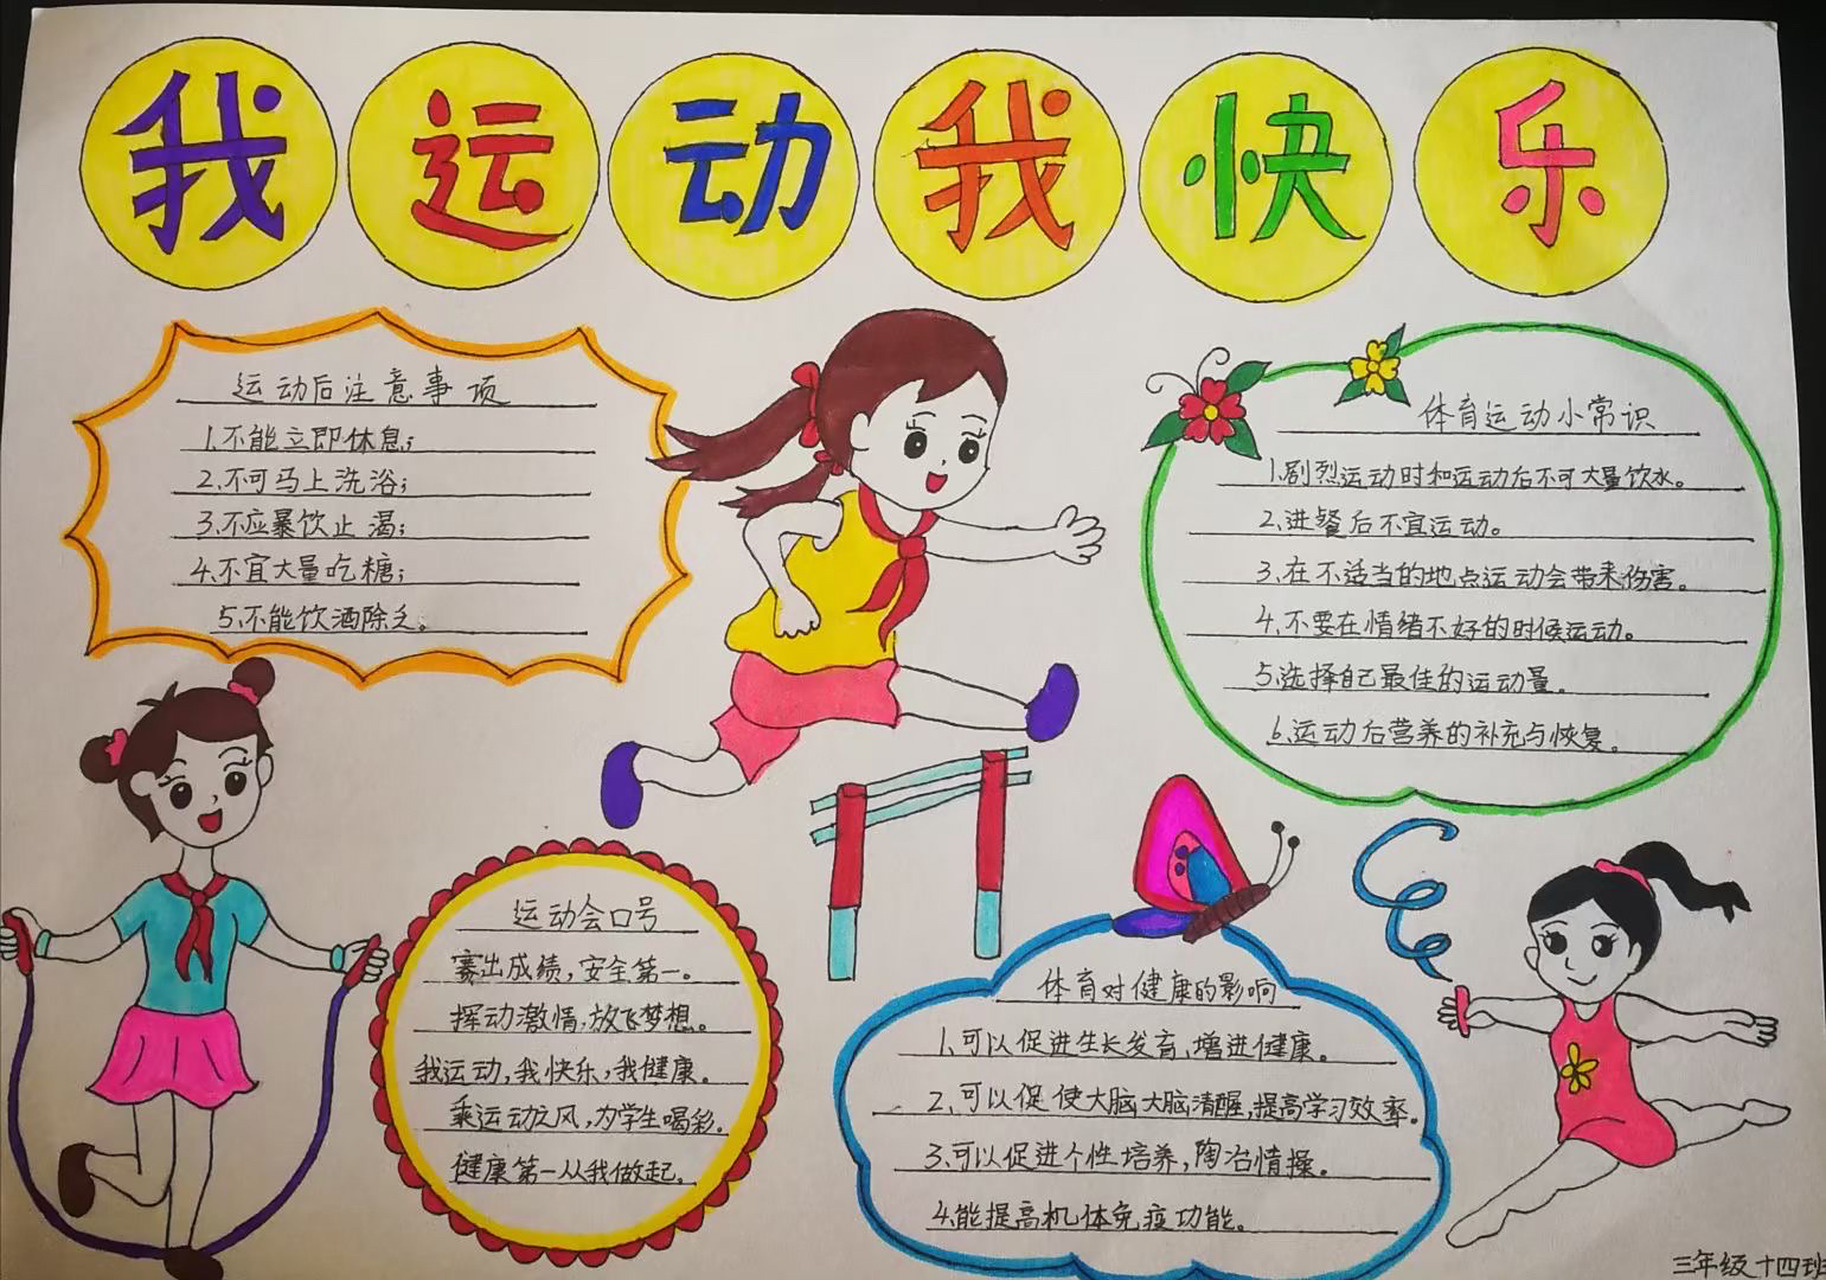 我运动我快乐
运动后注意事项
1.不能立即休息;
2.不可马上洗浴;
3.不应暴饮止渴;
4.不宜大量吃糖;
5.不能饮酒除乏。
体育运动小常识
1.剧烈运动时和运动后不可大量饮水。
2.进餐后不宜运动。
3.在不适当的地点运动会带来伤害。
4.不要在情绪不好的时候运动。
5.选择自己最佳的运动量。
6.运动后营养的补充与恢复。
运动会口号
赛出成绩,安全第一。
挥动激情,放飞梦想。
我运动,我快乐,我健康。
乘运动之风,为学生喝彩。
健康第一从我做起。
体育对健康的影响
1.可以促进生长发育、增进健康。
2.可以促使大脑大脑清醒,提高学习效率。
3.可以促进个性培养,陶冶情操。
4.能提高机体免疫功能。
三年级十四班